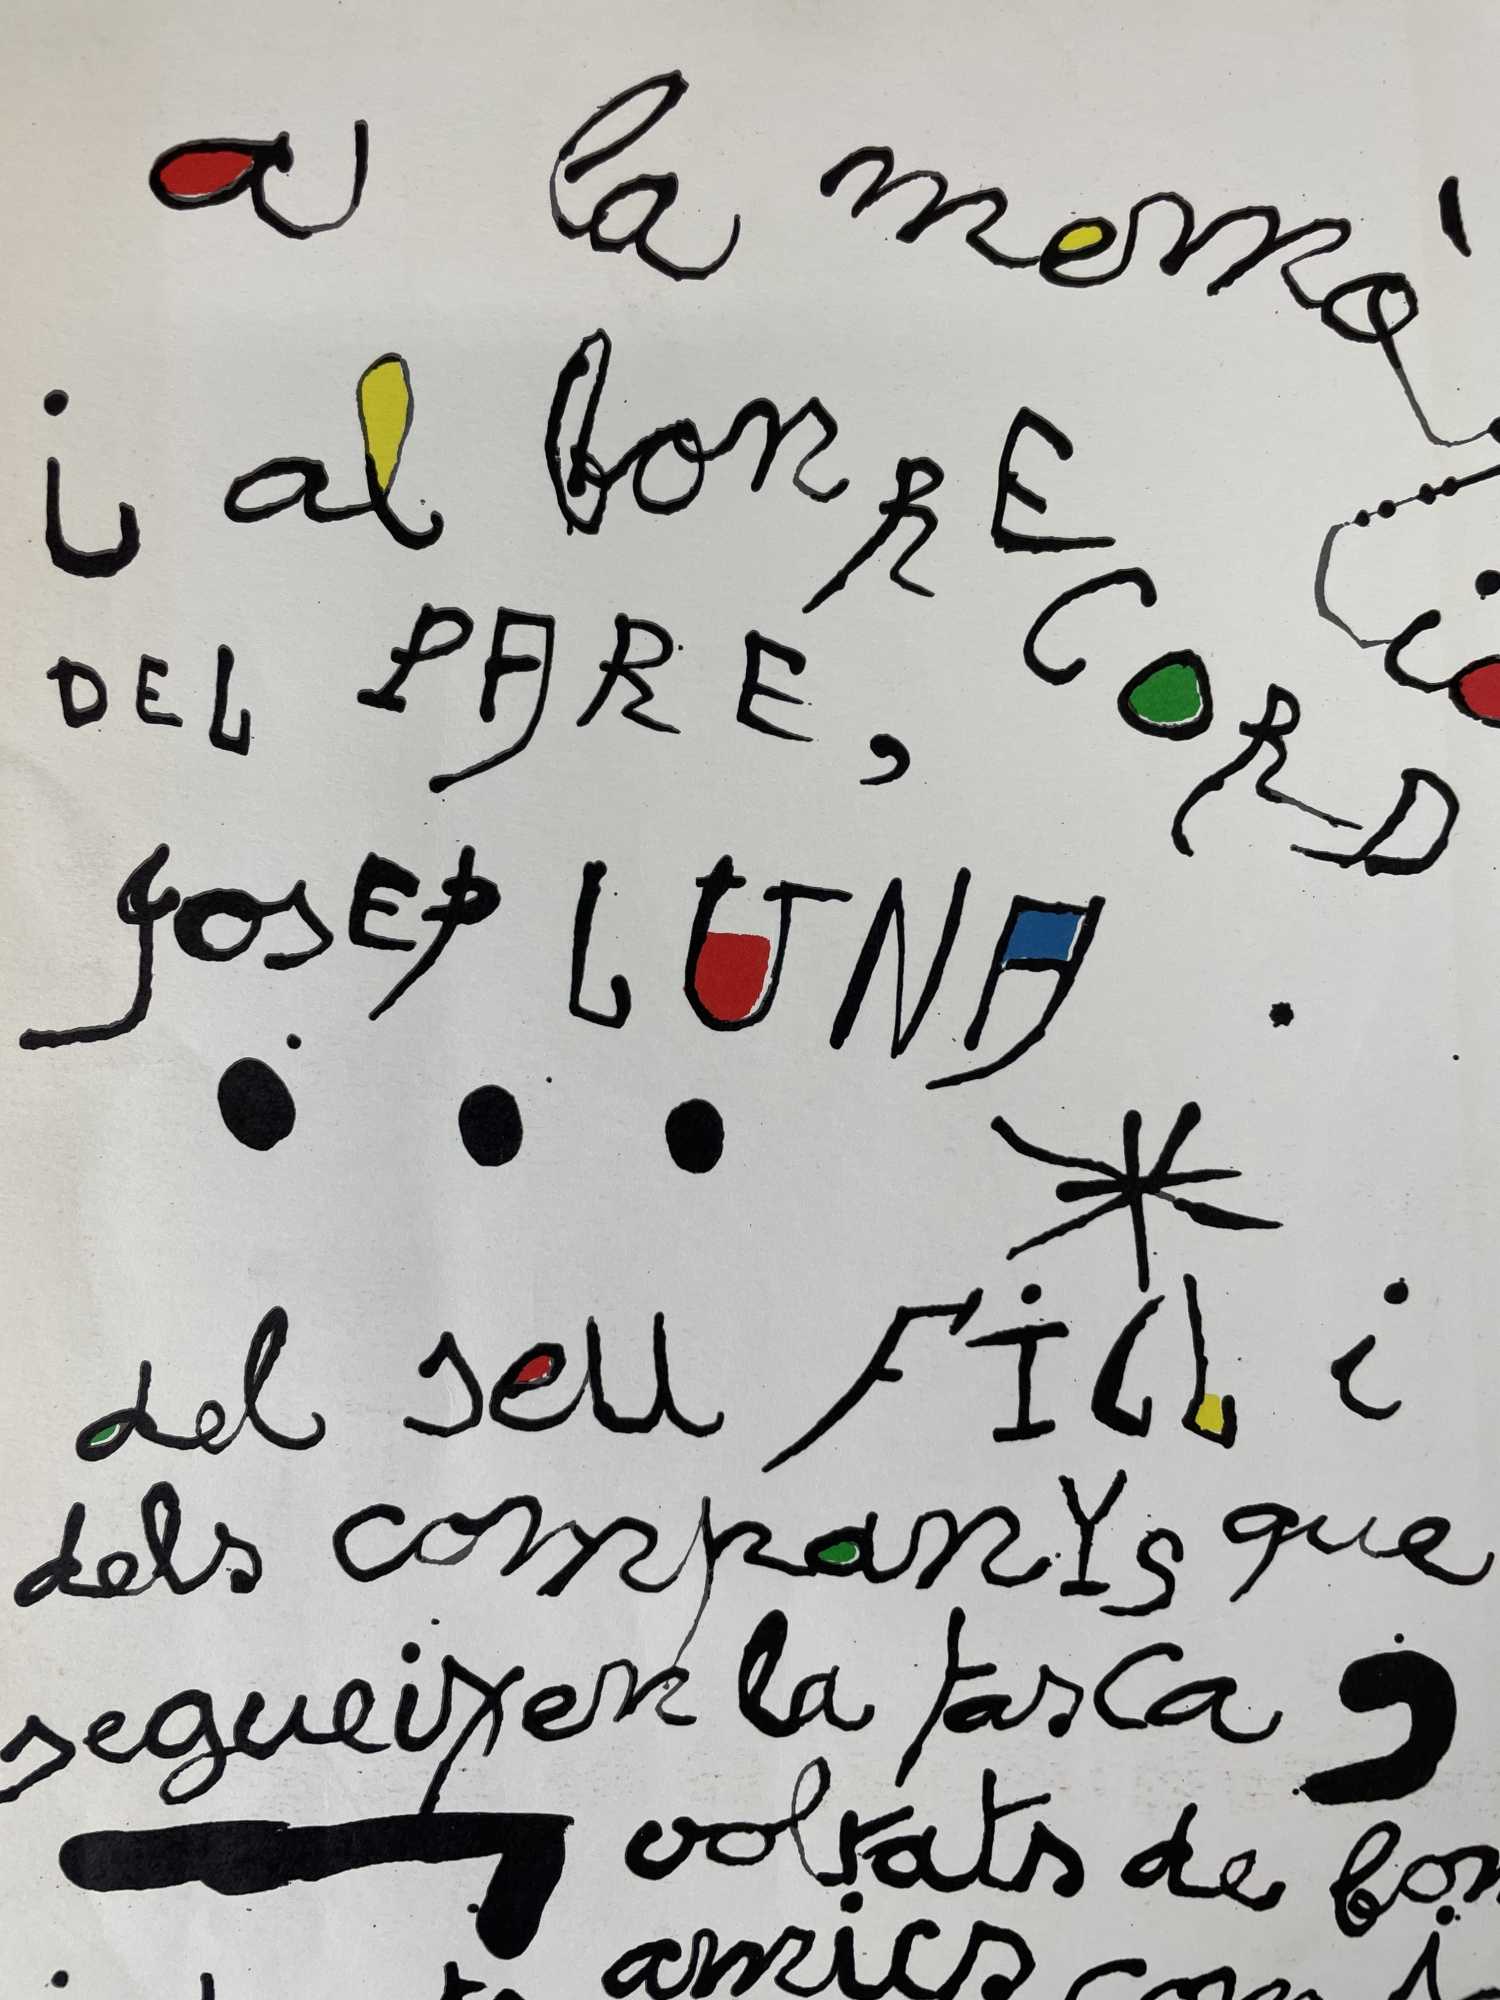 a la memò
i al bon RECORD
DEL PARE,
JOSEP LUNA.
del seu FiLL i
dels companYs que
segueixen la tasca,
voltats de bon
amics com